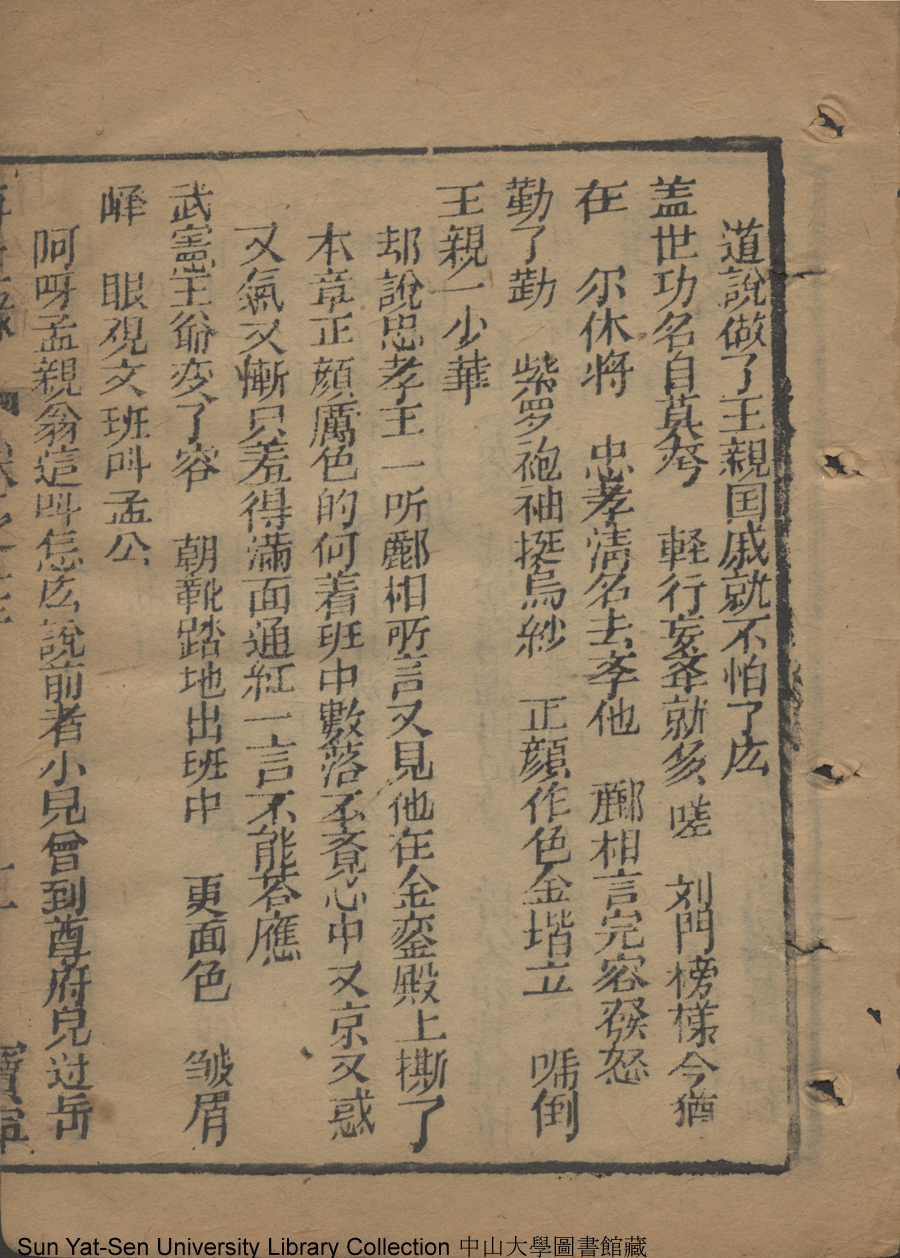 道說做了王親国戚就不怕了庅
盖世功名自莫夸　軽行妄奉就多嗟　刘門榜様今猶
在　尔休将　忠孝清名去奉他　酈相言完容發怒
勤了勤　紫罗袍袖挺烏紗　正顔作色金堦立　唬倒
王親一少華
却說忠孝王一听酈相所言又見他在金銮殿上撕了
本章正顔厲色的向着班中數落不斉心中又京又惑
又氣又慚只羞得滿面通紅一言不能荅應
武憲王爺変了容　朝靴踏地出班中　更面色　皱眉
峰　眼观文班叫孟公
阿呀孟親翁這叫怎庅說前者小兒曾到尊府見过岳
Sun Yat-Sen University Library Collection 中山大學圖書館藏